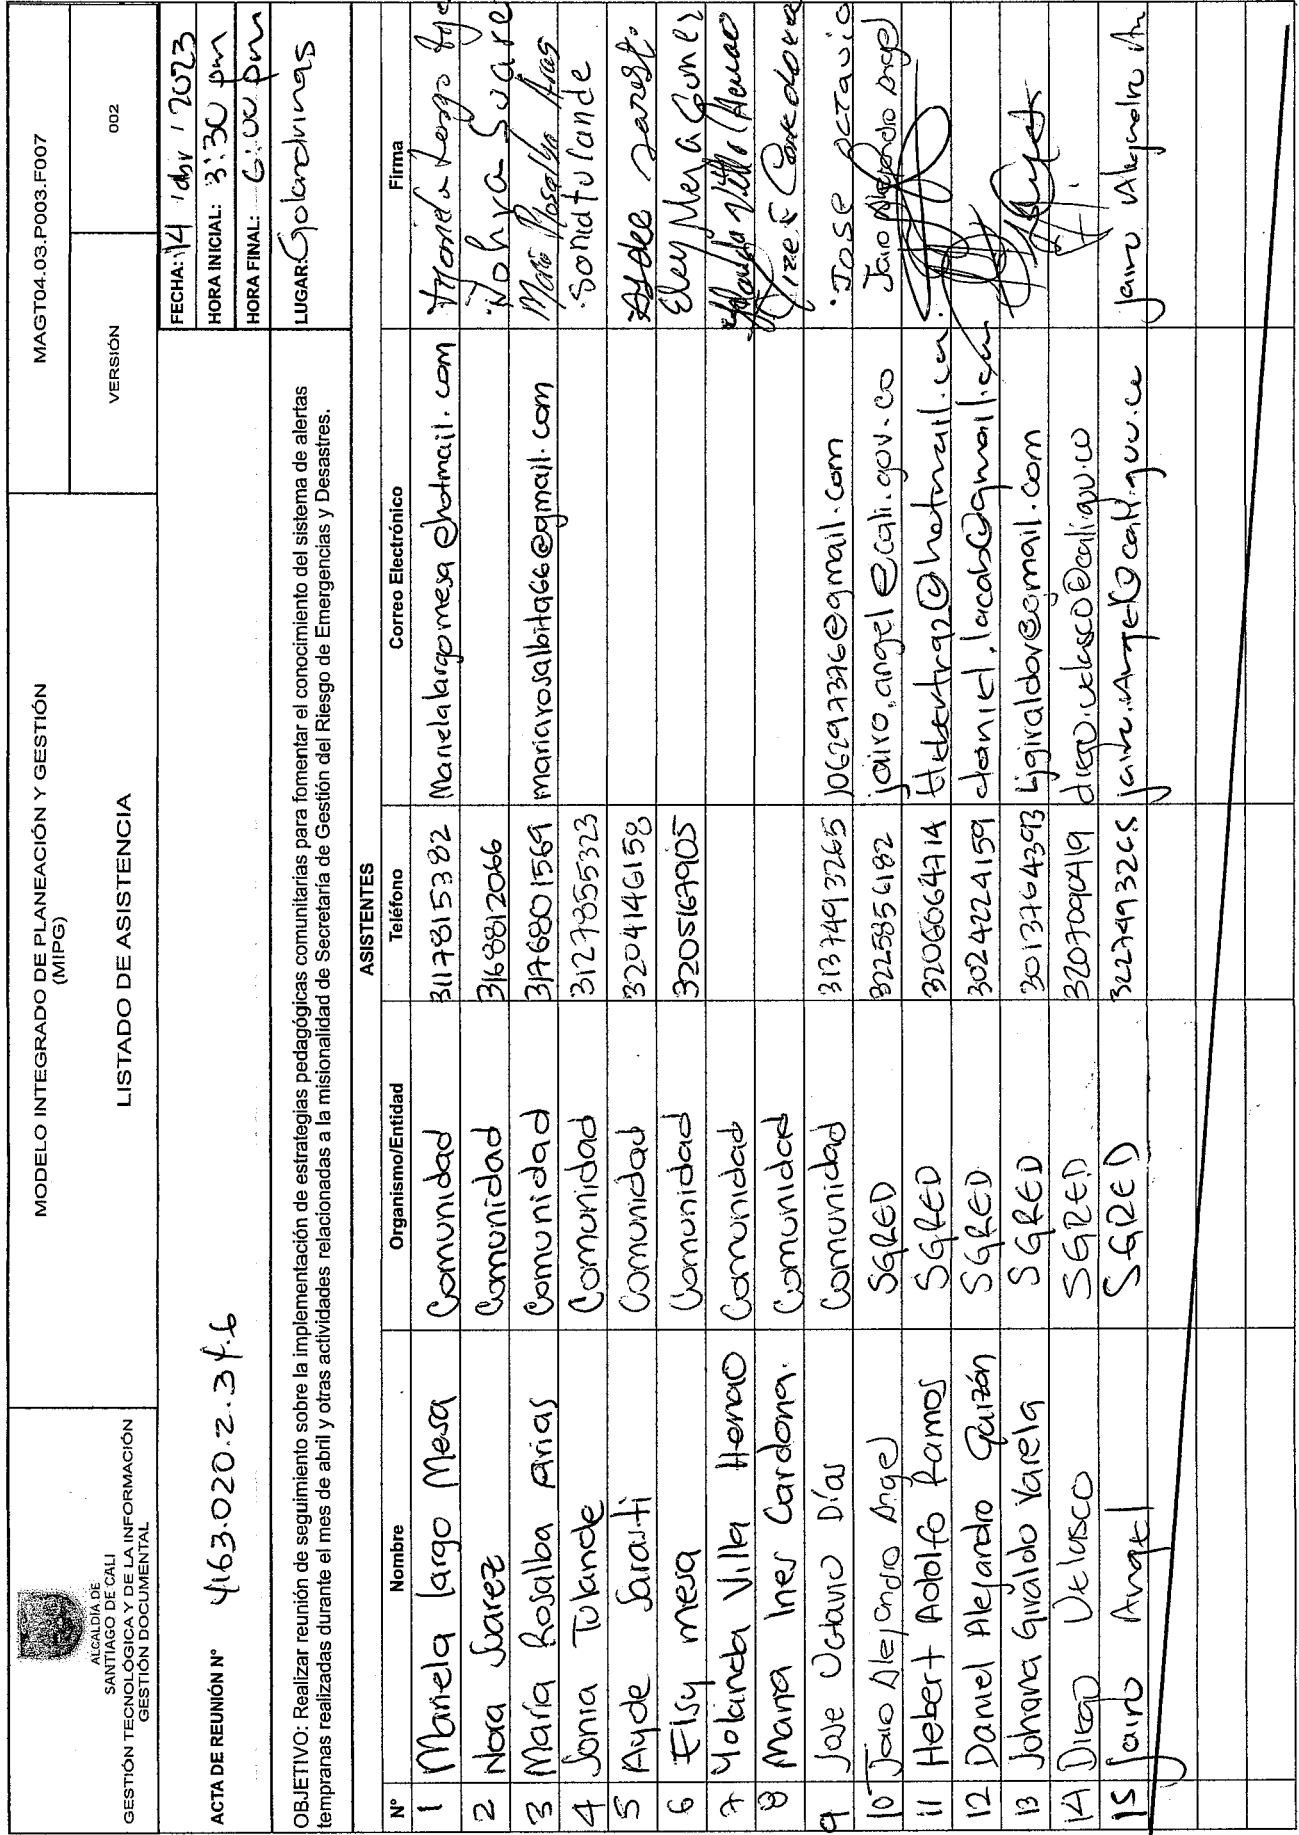 ALCALDÍA DE
SANTIAGO DE CALI
GESTIÓN TECNOLÓGICA Y DE LA INFORMACIÓN
GESTIÓN DOCUMENTAL
MODELO INTEGRADO DE PLANEACIÓN Y GESTIÓN
(MIPG)
LISTADO DE ASISTENCIA
MAGT04.03.P003.F007
VERSIÓN 002
ACTA DE REUNIÓN N° 4163.020.2.34.6
FECHA: 14 /abr / 2023
HORA INICIAL: 3:30 pm
HORA FINAL: 6:00 pm
OBJETIVO: Realizar reunión de seguimiento sobre la implementación de estrategias pedagógicas comunitarias para fomentar el conocimiento del sistema de alertas
tempranas realizadas durante el mes de abril y otras actividades relacionadas a la misionalidad de Secretaría de Gestión del Riesgo de Emergencias y Desastres.
LUGAR: Golondrinas
ASISTENTES
N° Nombre Organismo/Entidad Teléfono Correo Electrónico Firma
1 Mariela largo Mesa Comunidad 3117815382 Marielalargomesa@hotmail.com
2 Nora Suarez Comunidad 3168812066 Nohra Suare
3 María Rosalba Arias Comunidad 3176801569 mariarosalbita66@gmail.com Maria Rosalba Arias
4 Sonia Tulande Comunidad 3127855323 Sonia tulande
5 Ayde Sarasti Comunidad 3204146158
6 Elsy mesa Comunidad 3205167905
7 Yolanda Villa Henao Comunidad Yolanda Villa Henao
8 Maria Ines Cardona. Comunidad
9 Jose Octavio Días Comunidad 3137493265 jo6297376@gmail.com Jose octavio
10 Jairo Alejandro Angel SGRED 3225856182 jairo.angel@cali.gov.co Jairo Alejandro Angel
11 Hebert Adolfo Ramos SGRED 3206064714
12 Daniel Alejandro Garzón SGRED 3024224159
13 Johana Giraldo Varela SGRED 3013764393 Ljgiraldov@gmail.com
14 Diego Velasco SGRED 3207090419 diego.velasco@cali.gov.co
15 Jairo Angel SGRED 3227493265 jairo.Angel@cali.gov.co Jairo Alejandro An